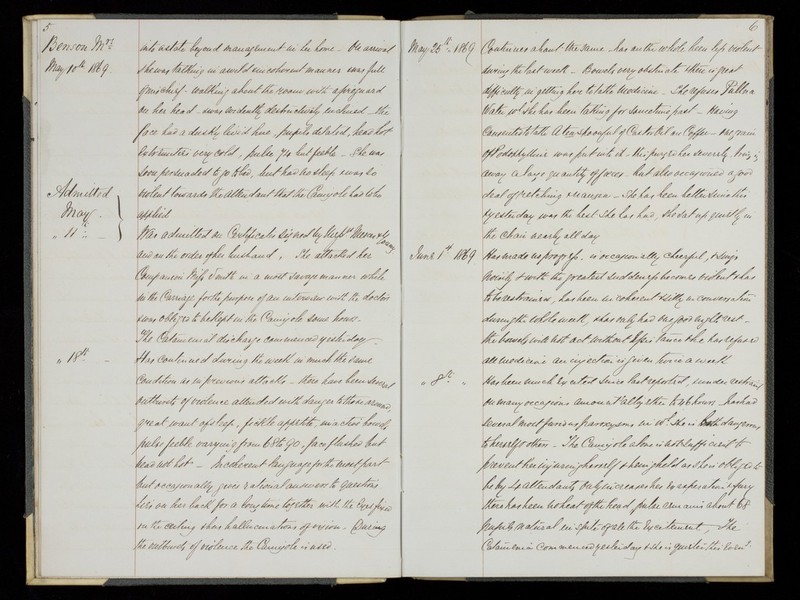 5
Benson Mrs
May 10th 1869
into a state beyond management in her home. On arrival
she was talking in a wild incoherent manner & was full
of mischief - walking about the room with a fireguard
on her head - was evidently destructively inclined - the
face had a dusky livid hue, pupils dilated, head hot
extremities very cold, pulse 70 but feeble - She was
soon persuaded to go to bed, but had no sleep & was so
violent towards the Attendant that the Camisole had to be
applied
Admitted
May
" 11th " -
Was admitted on Certificates signed by
and on the order of her husband. She attacked her
Companion Miss Smith in a most savage manner while
in the Carriage for the purpose of an interview with the doctor
& was obliged to be kept in the Camisole some hours.
The Catamenial discharge commenced yesterday -
" 18th -
Has continued during the week in much the same
condition as in previous attacks - there have been several
outbursts of violence attended with danger to those around,
great want of sleep, fickle appetite, inactive bowels,
pulse feeble varying from 68 to 90, face flushed but
head not hot - Incoherent language for the most part
but occasionally gives rational answer to questions
lies on her back for a long time together with the Eyes fixed
on the ceiling & has hallucinations of vision. During
the outbursts of violence the Camisole is used.
6
May 25th 1869
Continues about the same - has on the whole been less violent
during the last week - Bowels very obstinate & there is great
difficulty in getting her to take Medicine - She refuses Pullna
Water wh she has been taking for sometime past - Having
consented to take a teaspoonful of Castor Oil in Coffee - one grain
of Podophylline was put into it - this purged her severely, bring-g
away a large quantity of faeces but also occasioned a good
deal of retching & nausea - She has been better since this
& yesterday was the best she has had, she sat up quietly in
the chair nearly all day
June 1st 1869
Has made no progress, is occasionally cheerful, & sings
hoarsely & with the greatest suddenness becomes violent & has
to be restrained, has been incoherent & silly in conversation
during the whole week, & has only had one good night rest -
the bowels will not act without assistance & she has refused
all medicine an injection is given twice a week
" 8th "
Has been much excited since last reported, & under restraint
on many occasions amount altogether to 46 hours - has had
several most furious paroxysms in wh she is both dangerous
to herself & others - The Camisole alone is not sufficient to
prevent her injuring herself & being held as she is obliged to
be by 4 attendants only increases her exasperation & fury
there has been no heat of the head, pulse remains about 68
pupils natural in spite of all the Excitement, The
Catamenia commenced yesterday & she is quieter this Even-g